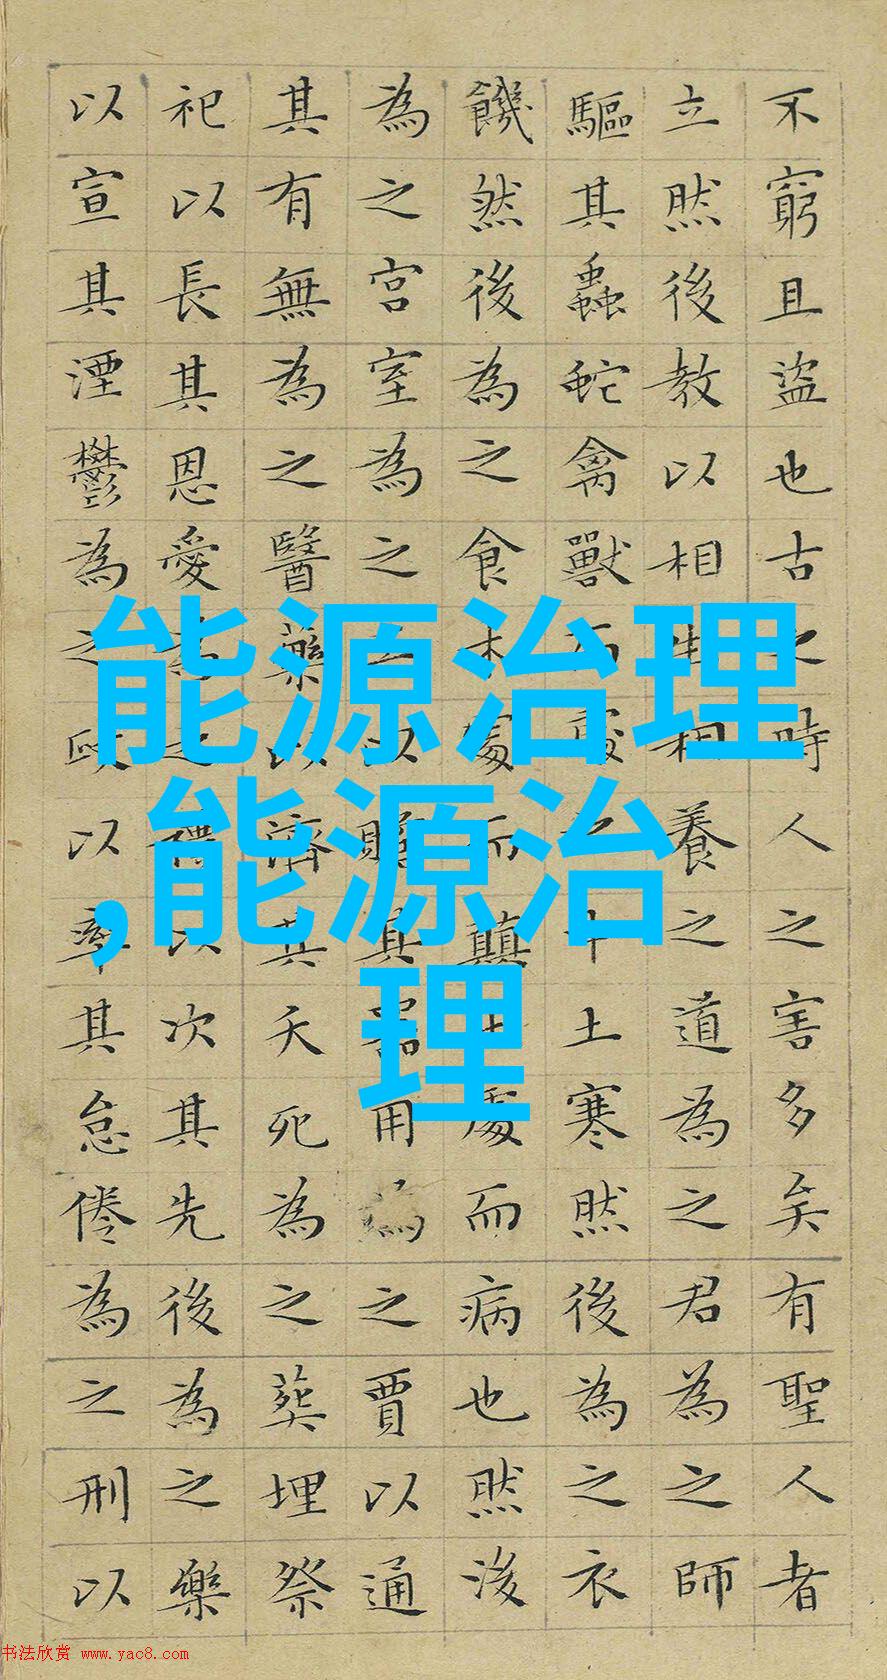 不窮且盜也古之時人之害多矣有聖人者
立然後教以相生相養之道為之君為之師
驅其蟲蛇禽獸而處之中土寒然後為之衣
饑然後為之食木處而顛土處而病也然後
為之宮室為之工以贍其器用為之賈以通
其有無為之醫藥以濟其夭死為之葬埋祭
祀以長其恩愛為之禮以次其先後為之樂
以宣其湮鬱為之政以率其怠倦為之刑以
能源治理
,能源治
理
书法欣赏 www.yac8.com